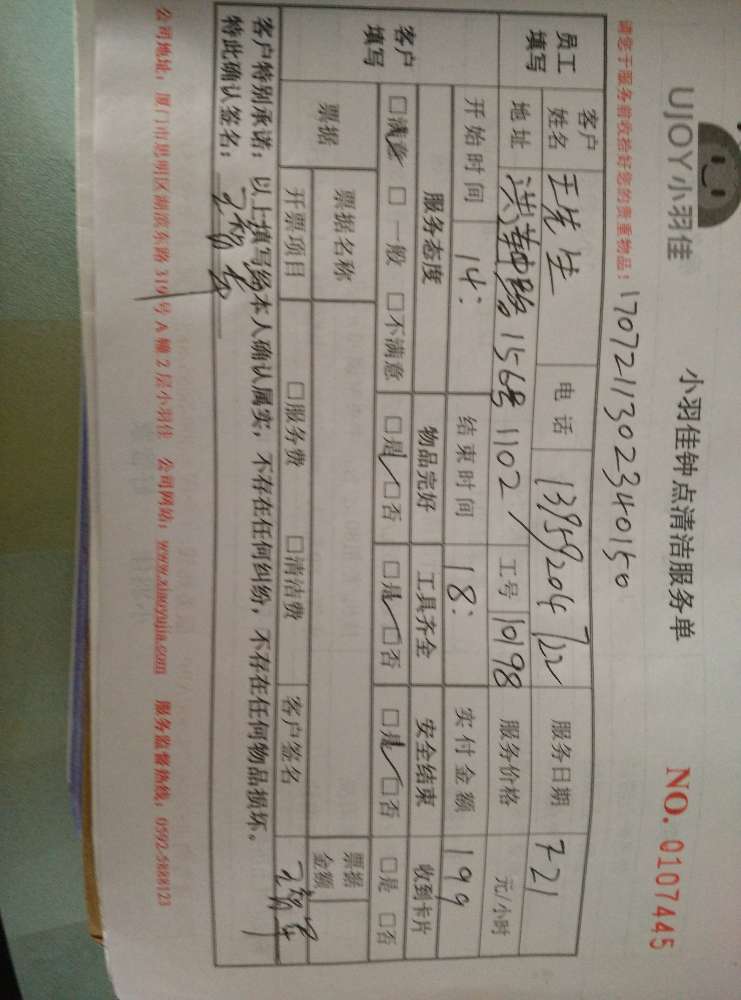 UJOY小羽佳 小羽佳钟点清洁服务单 NO. 0107445
请您于服务前收拾好您的贵重物品！ 1707211302340150
员工填写 客户姓名 王先生 电话 13959204722 服务日期 721
地址 156号1102 工号 10198 服务价格 元/小时
开始时间 14: 结束时间 18: 实付金额 199
客户填写 服务态度 物品完好 工具齐全 安全结束 收到卡片
□满意 □一般 □不满意 □是 □否 □是 □否 □是 □否 □是 □否
票据 票据名称 票据金额
开票项目 □服务费 □清洁费 客户签名
客户特别承诺：以上填写经本人确认属实，不存在任何纠纷，不存在任何物品损坏。
特此确认签名：
公司地址：厦门市思明区湖滨东路319号A幢2层小羽佳 公司网站：www.xiaoyujia.com 服务监督热线：0592-5888123